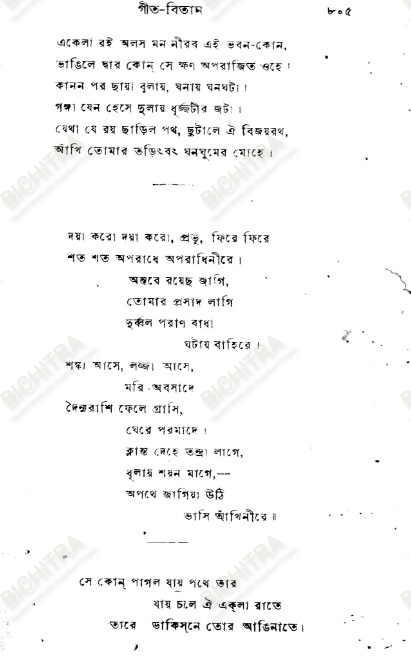 গীত-বিতান ৮০৫
একেলা রই অলস মন নীরব এই ভবন-কোন,
ভাঙিলে দ্বার কোন্ সে ক্ষণ অপরাজিত ওহে।
কানন পর ছায়া বুলায়, ঘনায় ঘনঘটা।
গঙ্গা যেন হেসে দুলায় ধূর্জ্জটীর জটা।
যেথা যে রয় ছাড়িল পথ, ছুটালে ঐ বিজয়রথ,
আঁখি তোমার তড়িৎবৎ ঘনঘুমের মোহে।
দয়া করো দয়া করো, প্রভু, ফিরে ফিরে
শত শত অপরাধে অপরাধিনীরে।
অন্তরে রয়েছ জাগি,
তোমার প্রসাদ লাগি
দুর্ব্বল পরাণ বাধা
ঘটায় বাহিরে।
শঙ্কা আসে, লজ্জা আসে,
মরি অবসাদে
দৈন্যরাশি ফেলে গ্রাসি,
ঘেরে পরমাদে।
ক্লান্ত দেহে তন্দ্রা লাগে,
ধূলায় শয়ন মাগে,—
অপথে জাগিয়া উঠি
ভাসি আঁখিনীরে॥
সে কোন্ পাগল যায় পথে তোর
যায় চলে ঐ একলা রাতে
তারে ডাকিস্‌নে তোর আঙিনাতে।
BICHITRA